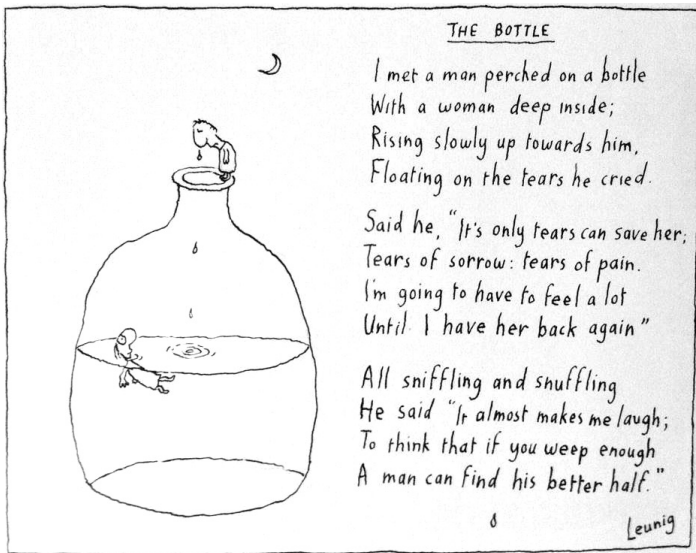 THE BOTTLE
I met a man perched on a bottle
With a woman deep inside;
Rising slowly up towards him,
Floating on the tears he cried.
Said he, "It's only tears can save her;
Tears of sorrow: tears of pain.
I'm going to have to feel a lot
Until I have her back again"
All sniffling and snuffling
He said "It almost makes me laugh;
To think that if you weep enough
A man can find his better half."
Leunig